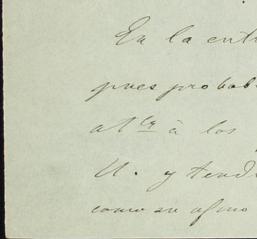 En la entr
pues probab
at.ta à los
U. y tendr
como su afmo